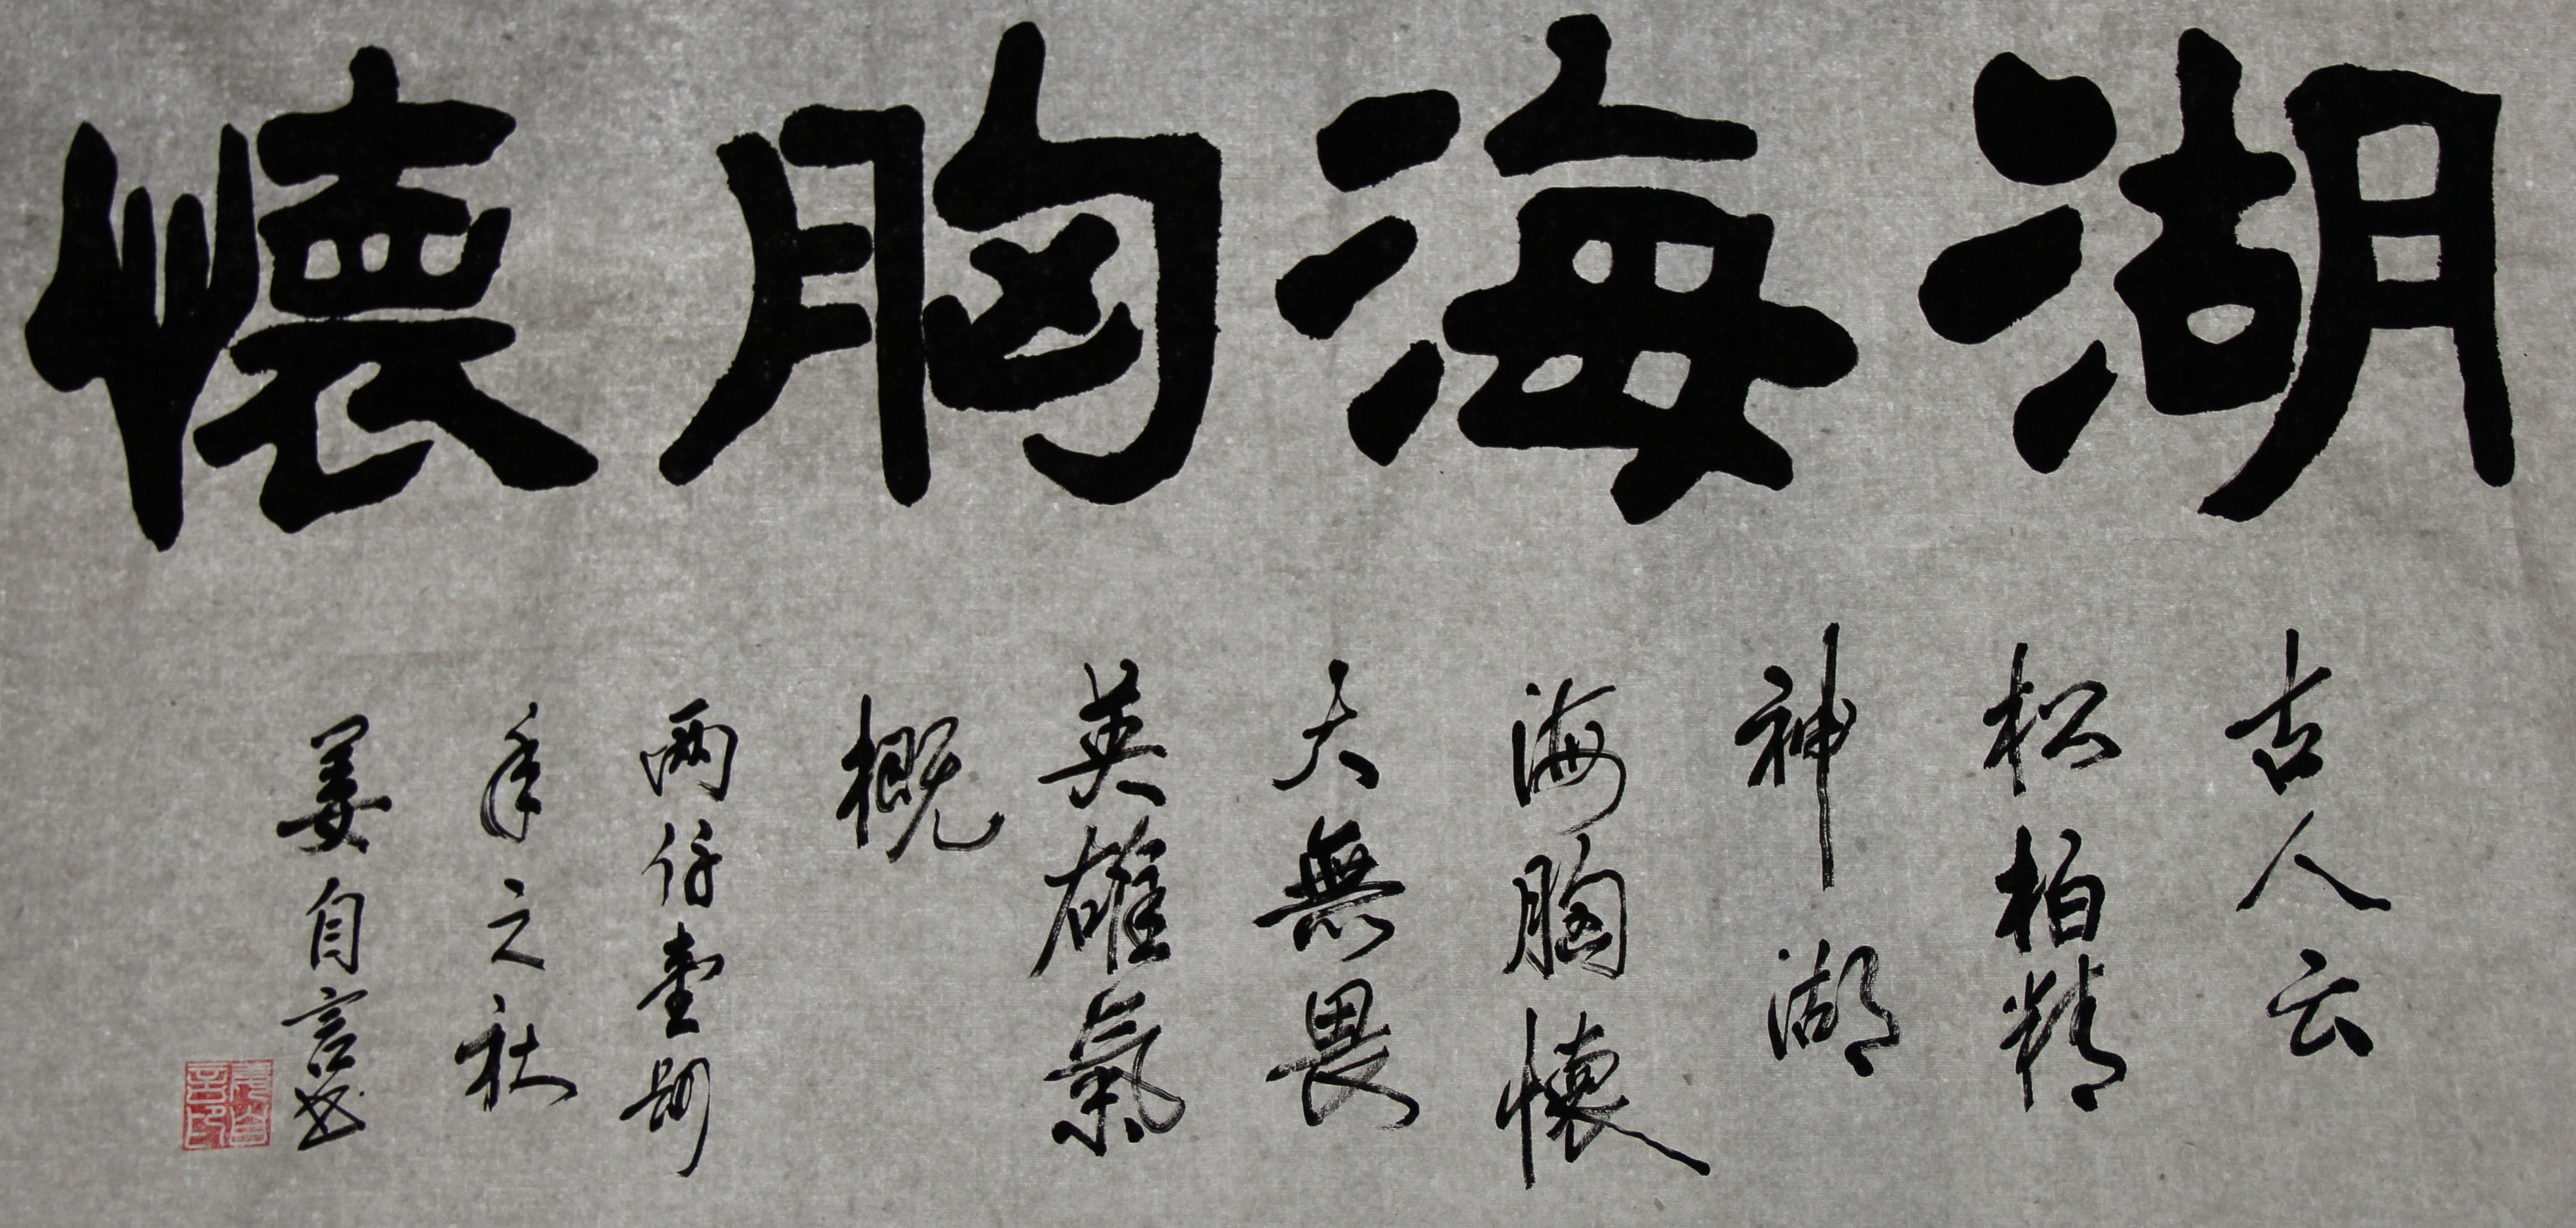 湖海胸懷
古人云
松柏精
神湖
海胸懷
大無畏
英雄氣
概
兩仟壹捌
年之秋
姜自言書
姜自言印